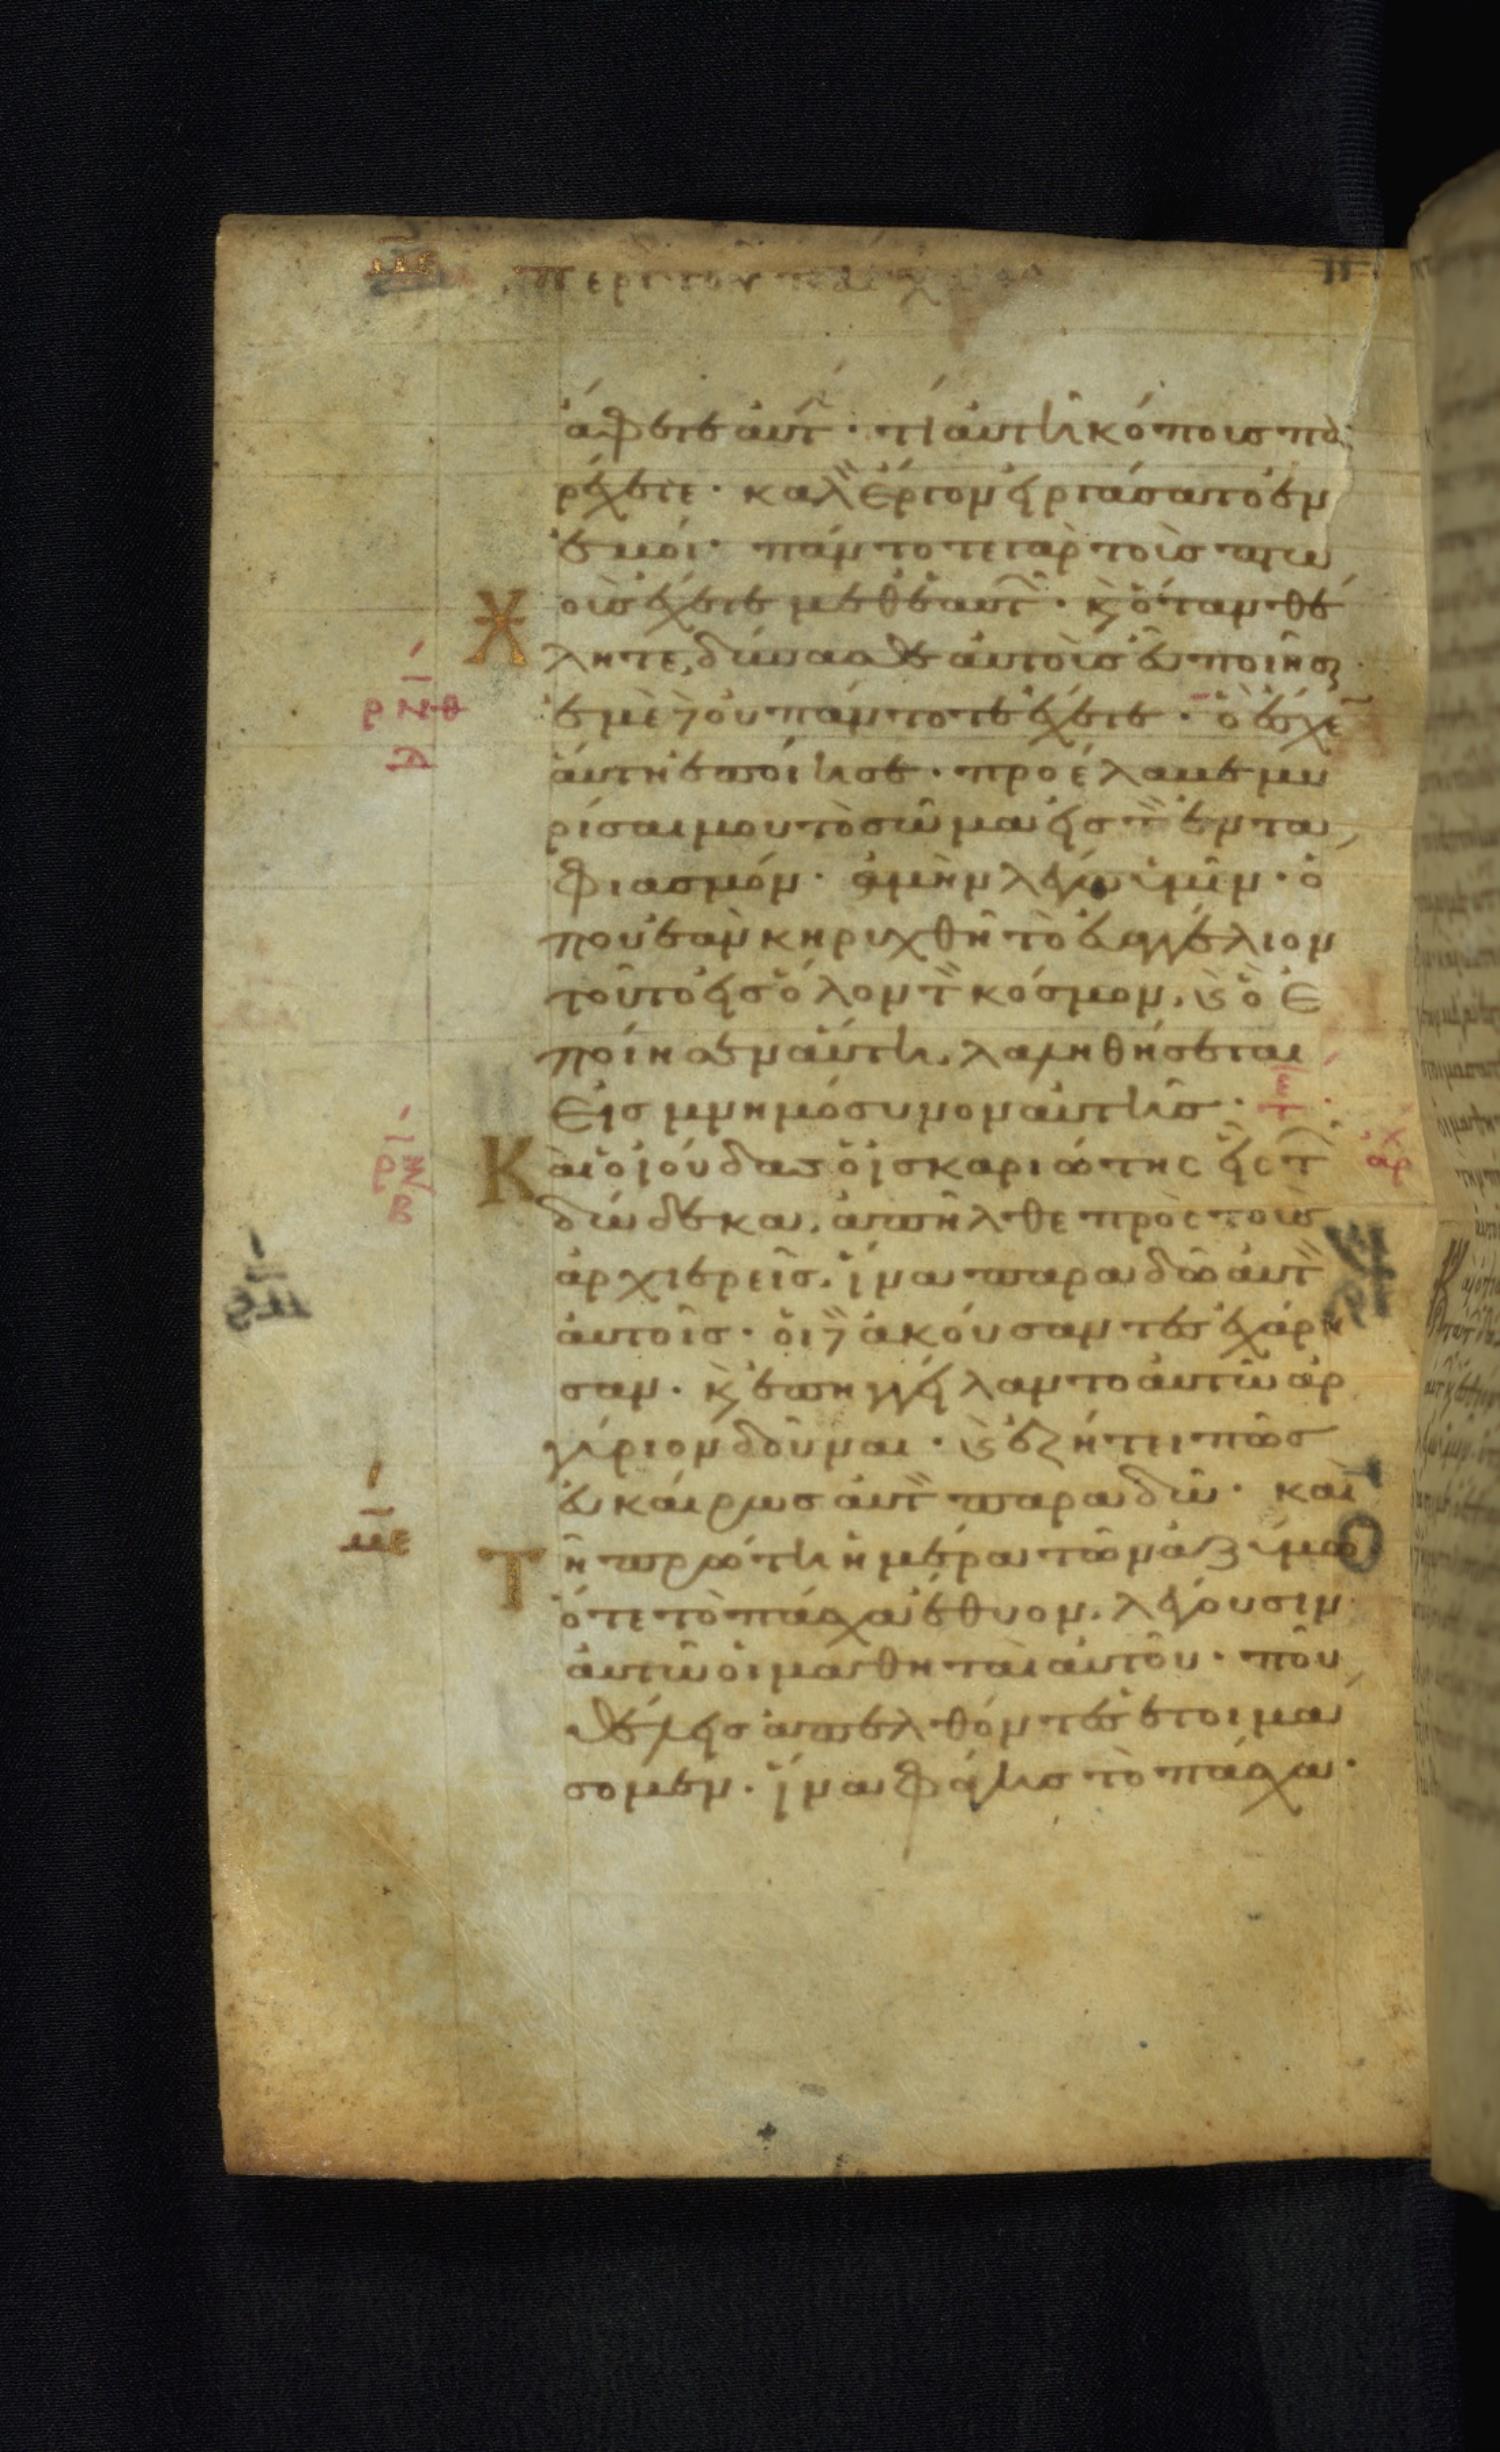 με περὶ τοῦ πάσχα
ἄφετε αὐτ̄· τί αὐτῆ κόπους πα
ρέχετε· καλ̄ ἔργον εἰργάσατο ἐν
ἐμοί· πάντοτε γὰρ τοὺς πτω
χοὺς ἔχετε μεθ' ἑαυτ̄· κ̀ ὅταν θέ
λητε, δύνασθε αὐτοὺς εὖ ποιῆσ
ἐμὲ δ̀ οὐ πάντοτε ἔχετε· ὃ ἔσχε̄
αὕτη ἐποίησε· προέλαβε μυ
ρίσαι μου τὸ σῶμα εἰς τ̀ ἐντα
φιασμόν· ἀμὴν λέγω ὑμῖν· ὅ
που ἐὰν κηρυχθῆ τὸ εὐαγγέλιον
τοῦτο εἰς ὅλον τ̀ κόσμον, κ̀ ὃ ἐ
ποίησεν αὕτη, λαληθήσεται
εἰς μνημόσυνον αὐτῆς· τε
Καὶ ὁ ἰούδας ὁ ἰσκαριώτης εἷς τ̄
δώδεκα, ἀπῆλθε πρὸς τοὺς
ἀρχιερεῖς, ἵνα παραδῶ αὐτ̀
αὐτοῖς· οἱ δ̀ ἀκούσαντες ἐχάρη
σαν· κ̀ ἐπηγγείλαντο αὐτῶ ἀρ
γύριον δοῦναι· κ̀ ἐζήτει πῶς
εὐκαίρως αὐτ̀ παραδῶ· καὶ
Τῆ πρώτη ἡμέρα τῶν ἀζύμω
ὅτε τὸ πάσχα ἔθυον, λέγουσιν
αὐτῶ οἱ μαθηταὶ αὐτοῦ· ποῦ
θέλεις ἀπελθόντες ἑτοιμά
σομεν· ἵνα φάγης τὸ πάσχα·
ρνθ
δ
ρξ
β
με
ἀρχ